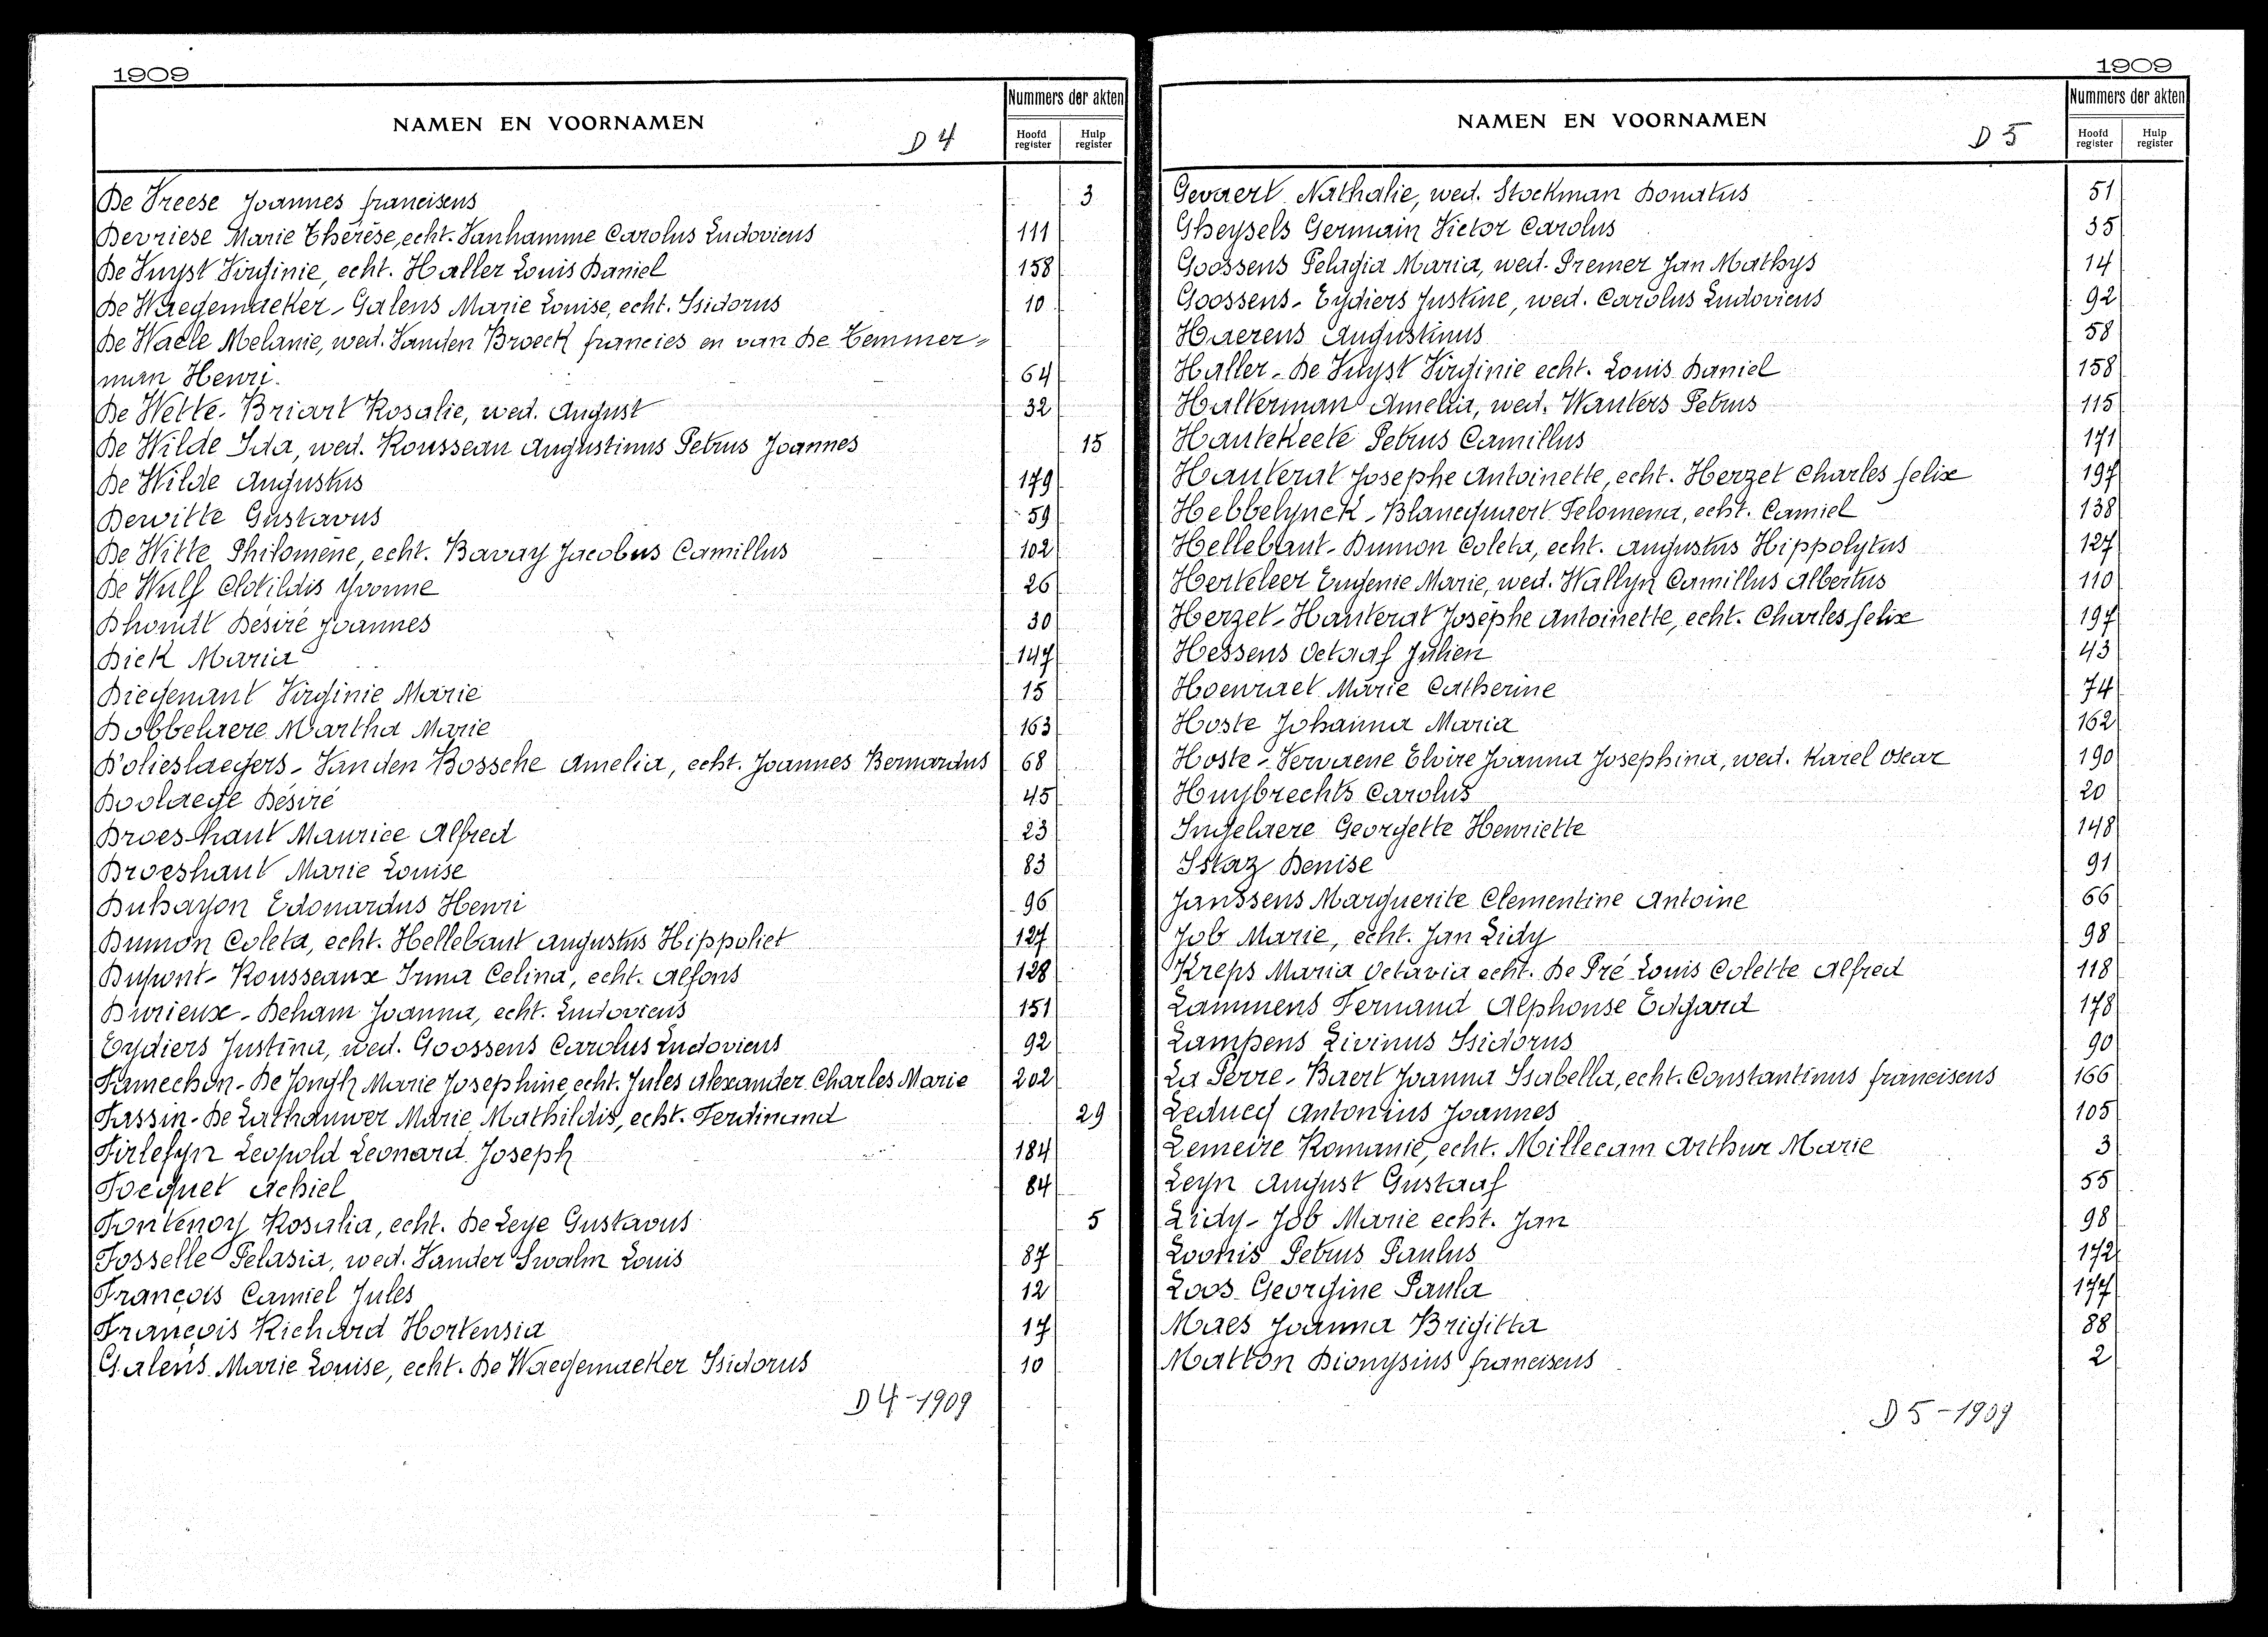 1909
NAMEN EN VOORNAMEN
D 4
Nummers der akten
Hoofd register
Hulp register
De Vreese Joannes franciscus 3
Devriese Marie Thérèse, echt. Vanhamme Carolus Ludovicus 111
De Vuyst Virginie, echt. Haller Louis Daniel 158
De Waegemaeker - Galens Marie Louise, echt. Isidorus 10
De Waele Melanie, wed. Vanden Broeck francies en van De Temmer=
man Henri. 64
De Wette - Briart Rosalie, wed. August 32
De Wilde Ida, wed. Rousseau Augustinus Petrus Joannes 15
De Wilde Augustus 179
Dewitte Gustavus 59
De Witte Philomène, echt. Bavay Jacobus Camillus 102
De Wulf Clotildis Yvonne 26
Dhondt Désiré Joannes 30
Dick Maria 147
Diegenant Virginie Marie 15
Dobbelaere Martha Marie 163
D'olieslaegers - Vanden Bossche Amelia, echt. Joannes Bernardus 68
Doolaege Désiré 45
Droeshaut Maurice Alfred 23
Droeshaut Marie Louise 83
Duhayon Edouardus Henri 96
Dumon Coleta, echt. Hellebaut Augustus Hippoliet 127
Dupont - Rousseaux Irma Celina, echt. Alfons 128
Durieux - Deham Joanna, echt. Ludovicus 151
Eydiers Justina, wed. Goossens Carolus Ludovicus 92
Famechon - De Jongh Marie Josephine, echt. Jules Alexander Charles Marie 202
Fassin - De Lathauwer Marie Mathildis, echt. Ferdinand 29
Firlefyn Leopold Leonard Joseph 184
Focquet Achiel 84
Fontenoy Rosalia, echt. De Leye Gustavus 5
Fosselle Pelasia, wed. Vander Swalm Louis 87
François Camiel Jules 12
François Richard Hortensia 17
Galens Marie Louise, echt. De Waegemaeker Isidorus 10
D 4 - 1909
1909
NAMEN EN VOORNAMEN
D 5
Nummers der akten
Hoofd register
Hulp register
Gevaert Nathalie, wed. Stockman Donatus 51
Gheysels Germain Victor Carolus 35
Goossens Pelagia Maria, wed. Premer Jan Mathys 14
Goossens - Eydiers Justine, wed. Carolus Ludovicus 92
Haerens Augustinus 58
Haller - De Vuyst Virginie echt. Louis Daniel 158
Halterman Amelia, wed. Wauters Petrus 115
Hautekeete Petrus Camillus 171
Hauterat Josephe Antoinette, echt. Herzet Charles felix 197
Hebbelynck - Blancquaert Felomena, echt. Camiel 138
Hellebaut - Dumon Coleta, echt. Augustus Hippolytus 127
Herteleer Eugenie Marie, wed. Wallyn Camillus Albertus 110
Herzet - Hauterat Josèphe Antoinette, echt. Charles felix 197
Hessens Octaaf Julien 43
Hoenraet Marie Catherine 74
Hoste Johanna Maria 162
Hoste - Vervaene Elvire Joanna Josephina, wed. Karel Oscar 190
Huybrechts Carolus 20
Ingelaere Georgette Henriette 148
Istaz Denise 91
Janssens Marguerite Clementine Antoine 66
Job Marie, echt. Jan Lidy 98
Kreps Maria Octavia echt. De Pré Louis Colette Alfred 118
Lammens Fernand Alphonse Edgard 178
Lampens Livinus Isidorus 90
La Perre - Baert Joanna Isabella, echt. Constantinus franciscus 166
Leducq Antonius Joannes 105
Lemeire Romanie, echt. Millecam Arthur Marie 3
Leyn August Gustaaf 55
Lidy - Job Marie echt. Jan 98
Loonis Petrus Paulus 172
Loos Georgine Paula 177
Maes Joanna Brigitta 88
Matton Dionysius franciscus 2
D 5 - 1909